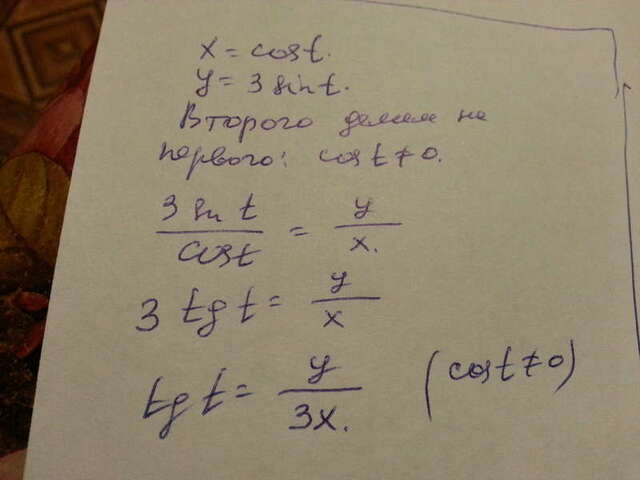 x = cost.
y = 3 sint.
Второго делим на
первого: cost ≠ 0.
3 sin t / cost = y / x.
3 tg t = y / x
tg t = y / 3x. (cost ≠ 0)